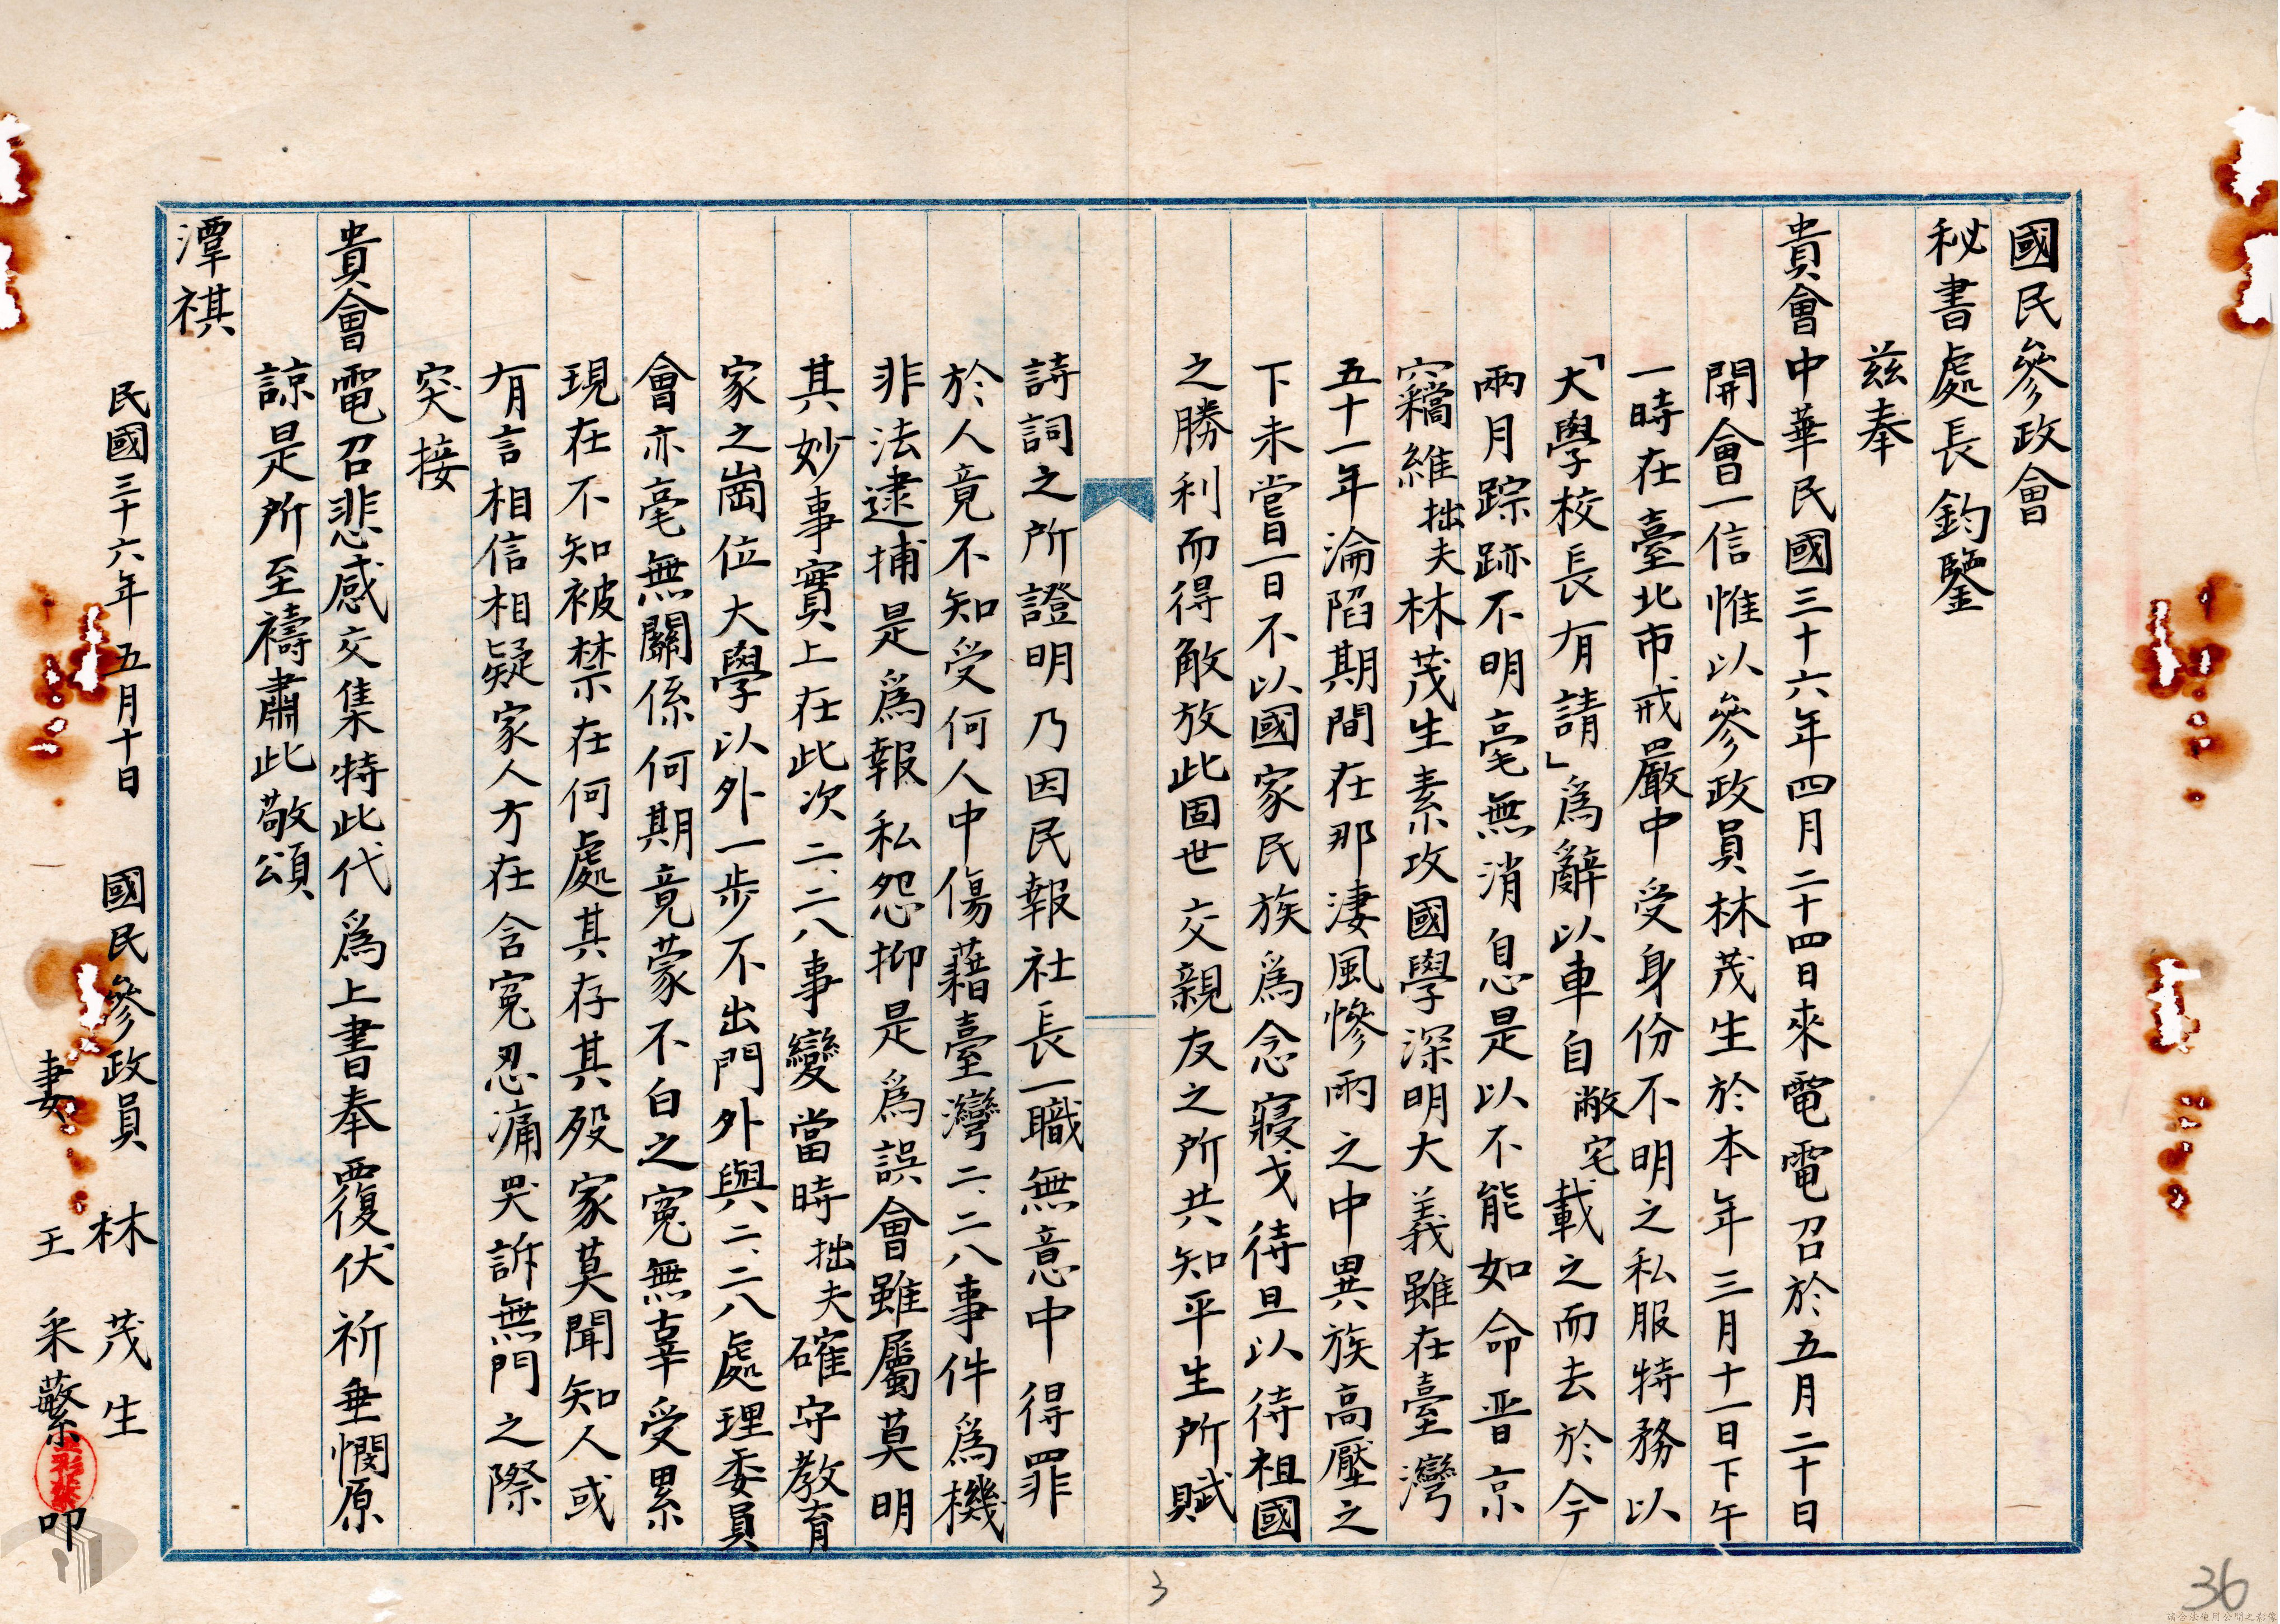 國民參政會
秘書處長鈞鑒
茲奉
貴會中華民國三十六年四月二十四日來電電召於五月二十日
開會一信惟以參政員林茂生於本年三月十一日下午
一時在臺北市戒嚴中受身份不明之私服特務以
「大學校長有請」為辭以車自敝宅載之而去於今
兩月踪跡不明毫無消息是以不能如命晋京
竊維拙夫林茂生素攻國學深明大義雖在臺灣
五十一年淪陷期間在那淒風慘雨之中異族高壓之
下未嘗一日不以國家民族為念寢戈待旦以待祖國
之勝利而得敵放此固世交親友之所共知平生所賦
詩詞之所證明乃因民報社長一職無意中得罪
於人竟不知受何人中傷藉臺灣二、二八事件為機
非法逮捕是為報私怨抑是為誤會雖屬莫明
其妙事實上在此次二、二八事變當時拙夫確守教育
家之崗位大學以外一步不出門外與二、二八處理委員
會亦毫無關係何期竟蒙不白之冤無辜受累
現在不知被禁在何處其存其歿家莫聞知人或
有言相信相疑家人方在含冤忍痛哭訴無門之際
突接
貴會電召悲感交集特此代為上書奉覆伏祈垂憫原
諒是所至禱肅此敬頌
潭祺
民國三十六年五月十日 國民參政員 林茂生
妻 王采蘩 叩
3
36
請合法使用公開之影像